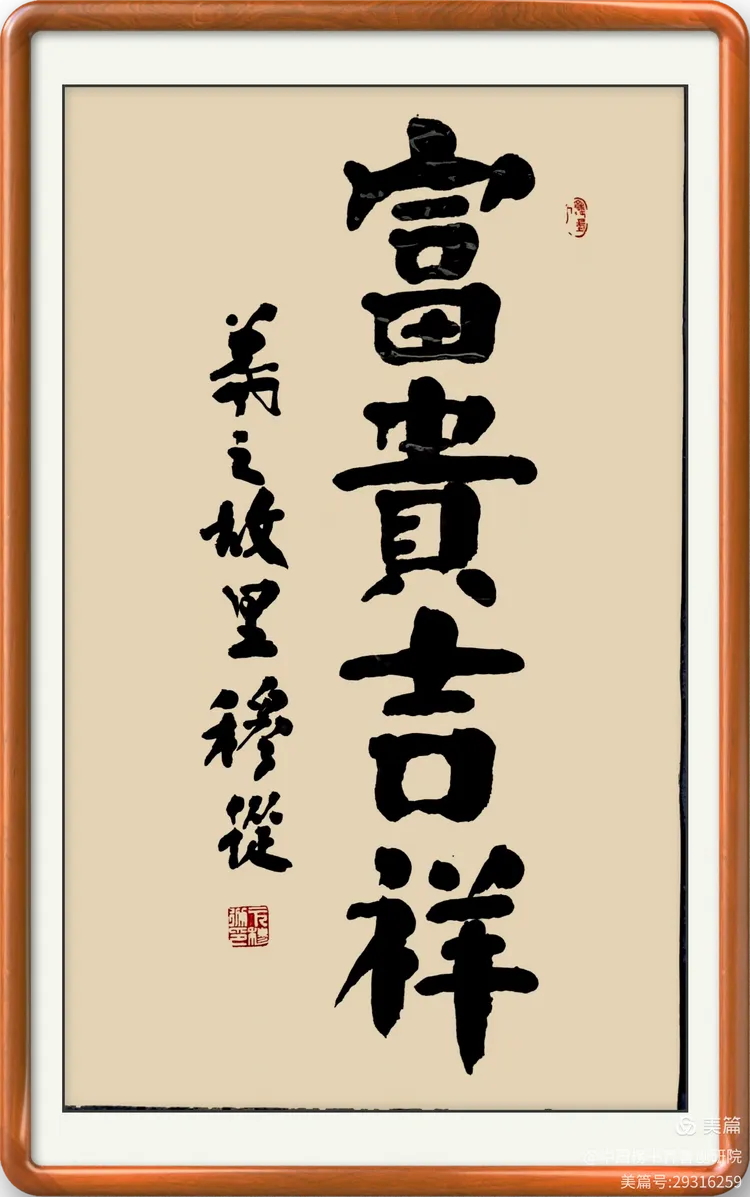 富貴吉祥
羲之故里穆從
美篇
美篇号:29316259